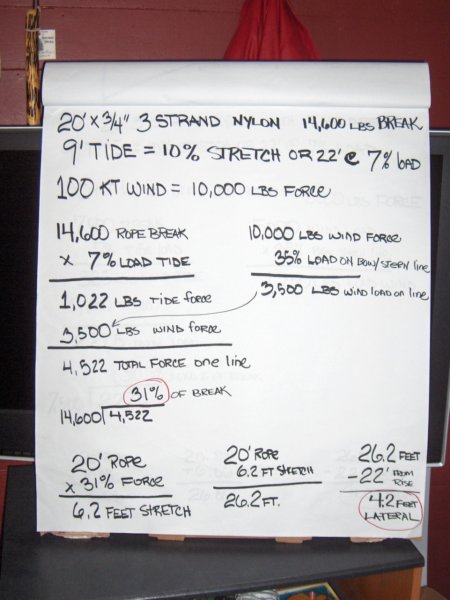 20' x 3/4" 3 STRAND NYLON 14,600 LBS BREAK
9' TIDE = 10% STRETCH OR 22' @ 7% LOAD
100 KT WIND = 10,000 LBS FORCE
14,600 ROPE BREAK
x 7% LOAD TIDE
1,022 LBS TIDE force
3,500 LBS WIND force
4,522 TOTAL FORCE one line
31% OF BREAK
14,600 4,522
10,000 LBS WIND FORCE
35% LOAD ON BOW/STERN line
3,500 LBS WIND load on line
20' ROPE
x 31% FORCE
6.2 FEET STRETCH
20' ROPE
6.2 FT STRETCH
26.2 FT.
26.2 FEET
-22' FROM RISE
4.2 FEET
LATERAL